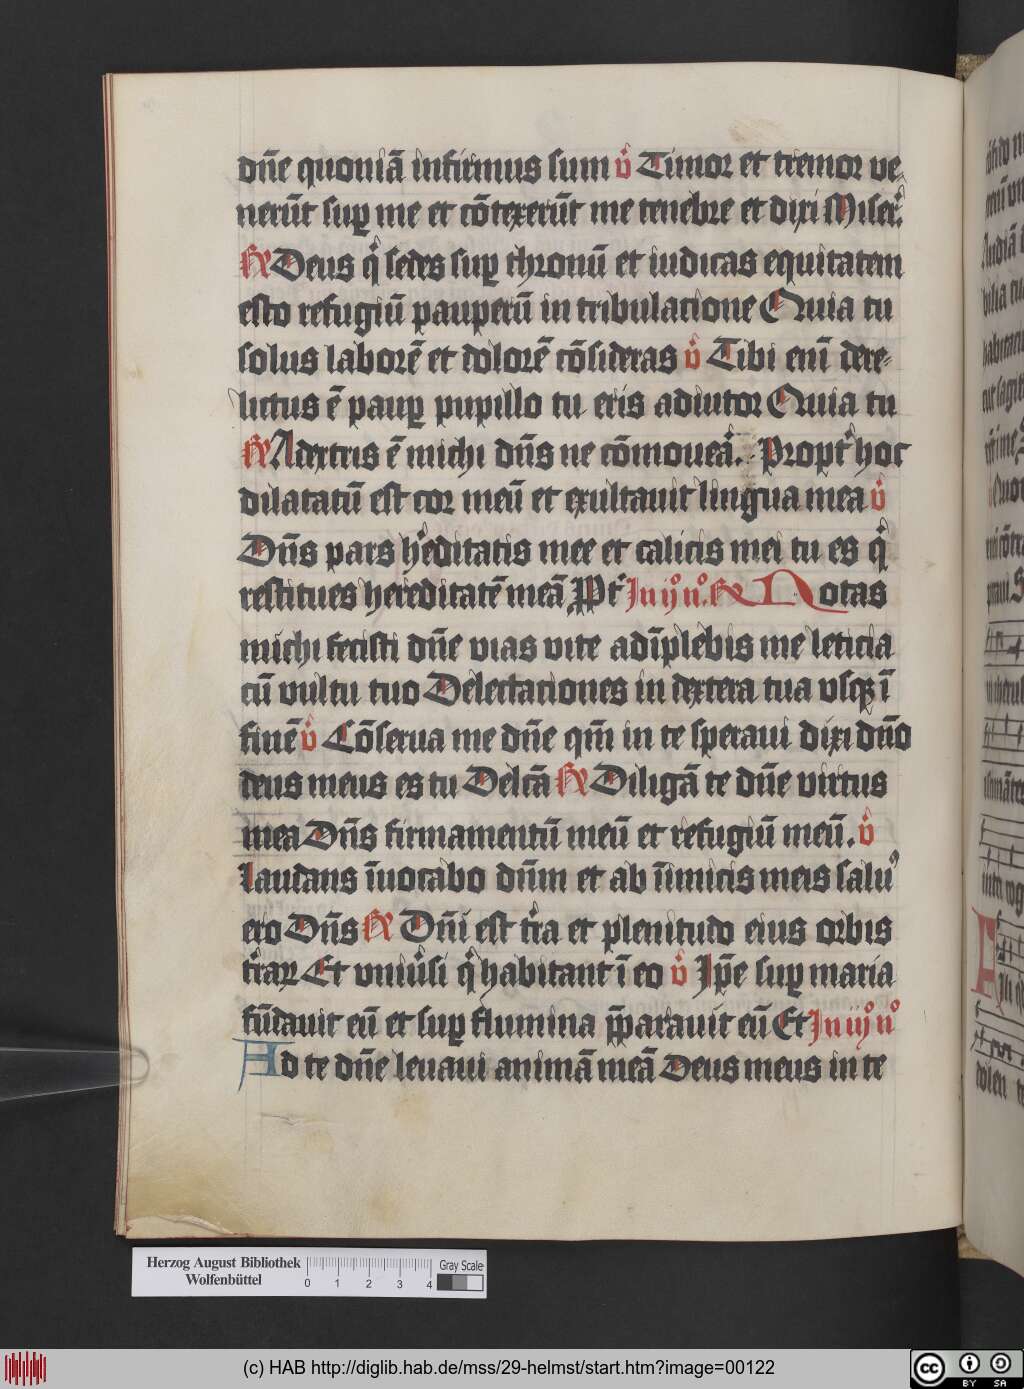 dn̄e quoniā infirmus sum v̊ Timor et tremor ve-
nerūt suꝑ me et cōtexerūt me tenebre et dixi Miser̉.
R̃ Deus q̇ sedes suꝑ thronū et iudicas equitatem
esto refugiū pauperū in tribulatione Quia tu
solus laborē et dolorē cōsideras v̊ Tibi enī dere-
lictus ē pauꝑ pupillo tu eris adiutor Quia tu
R̃ Adextris ē michi dn̄s ne cōmoueā. Propt̉ hoc
dilatatū est cor meū et exultauit lingua mea v̊
Dn̄s pars h̉editatis mee et calicis mei tu es q̇
restitues hereditatē meā Ppt̉ In ijº nº. R̃ Notas
michi fecisti dn̄e vias vite adīplebis me leticia
cū vultu tuo Delectationes in dextera tua vsqꝫ ī
finē v̊ Cōserua me dn̄e qm̄ in te speraui dixi dn̄o
deus meus es tu Delc̄ā R̃ Diligā te dn̄e virtus
mea Dn̄s firmamentū meū et refugiū meū. v̊
Laudans īuocabo dn̄m et ab īimicis meis saluꝰ
ero Dn̄s R̃ Dn̄i est t̉ra et plenitudo eius orbis
t̉raꝝ Et vniủsi q̇ habitant ī eo v̊ Ip̄e suꝑ maria
fūdauit eū et suꝑ flumina p̄parauit eū Et In iijº nº
Ad te dn̄e leuaui animā meā Deus meus in te
Herzog August Bibliothek
Wolfenbüttel
0 1 2 3 4
Gray Scale
(c) HAB http://diglib.hab.de/mss/29-helmst/start.htm?image=00122
cc BY SA